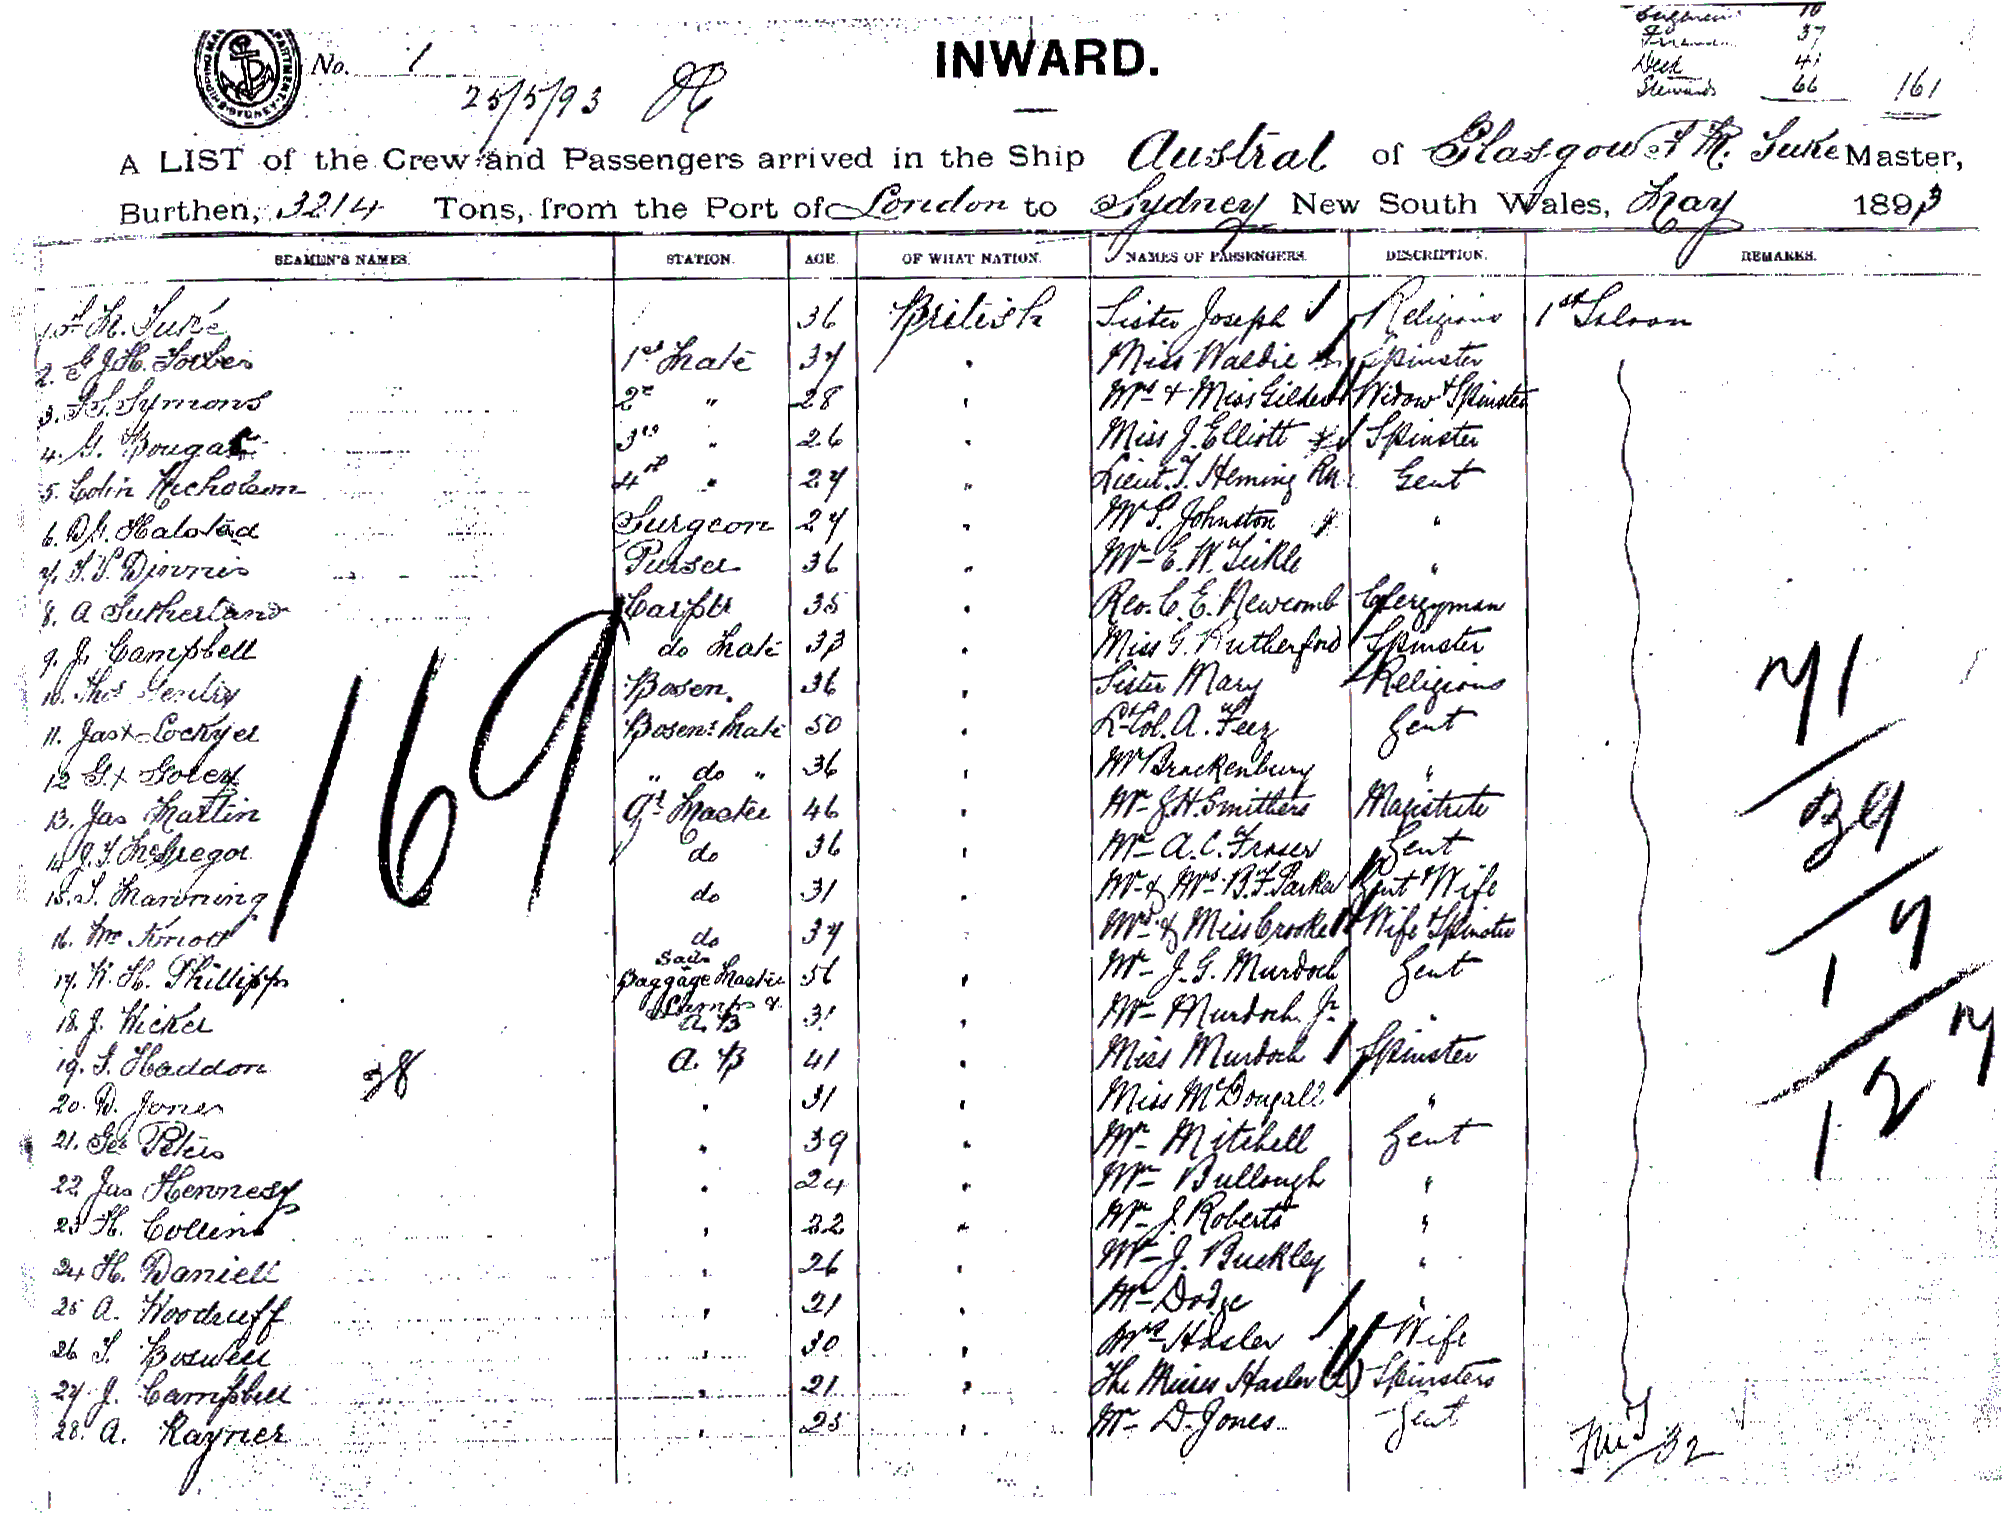 No. 1
25/5/93
INWARD.
37
Deck 41
Stewards 66 161
A LIST of the Crew and Passengers arrived in the Ship Austral of Glasgow Master,
Burthen, 3214 Tons, from the Port of London to Sydney New South Wales, May 1893
SEAMEN'S NAMES. STATION. AGE. OF WHAT NATION. NAMES OF PASSENGERS. DESCRIPTION. REMARKS.
1. 36 British Sister Joseph Religious 1st Saloon
2. G J H. Forbes 1st Mate 37 " Miss Waldie Spinster
3. Symons 2nd " 28 " Mrs & Miss Widow & Spinster
4. G. 3rd " 26 " Miss J. Elliott Spinster
5. Colin Nicholson 4th " 27 " Lieut. T. Heming RN. Gent
6. Halstead Surgeon 27 " Mr S. Johnston "
7. Purser 36 " Mr E. W. "
8. A Sutherland Carptr 35 " Rev. C. E. Newcomb Clergyman
9. J. Campbell do Mate 33 " Miss G. Rutherford Spinster
10. Thos Bosen. 36 " Sister Mary Religious
11. Jas x Lockyer Bosens Mate 50 " Lt Col. A. Feez Gent
12 G. x " do " 36 " Mr Brackenbury "
13. Jas Martin Qr. Master 46 " Mr Smithers Magistrate
14 J. McGregor do 36 " Mr A. C. Fraser Gent
15. Manning do 31 " Mr & Mrs B. F. Parker Gent & Wife
16. Wm Knott do 37 " Mrs & Miss Crooke Wife & Spinster
17. H. Phillipps Baggage Master 56 " Mr J. G. Murdoch Gent
18. J. Lamps & A.B 31 " Mr Murdoch Jr. "
19. Haddon 38 A. B 41 " Miss Murdoch Spinster
20. D. Jones " 31 " Miss McDougall "
21. Geo Peters " 39 " Mr Mitchell Gent
22. Jas Hennesy " 24 " Mr Bullough "
23 H. Collins " 22 " Mr J. Roberts "
24 H. Daniell " 26 " Mr J. Buckley "
25 A. Woodruff " 21 " Mr Dodge "
26 Boswell " 30 " Mrs Hasler Wife
27 J. Campbell " 21 " The Misses Hasler (2) Spinsters
28. A. Rayner " 25 " Mr D. Jones Gent
169
71
39
1 7
1 2 7
32